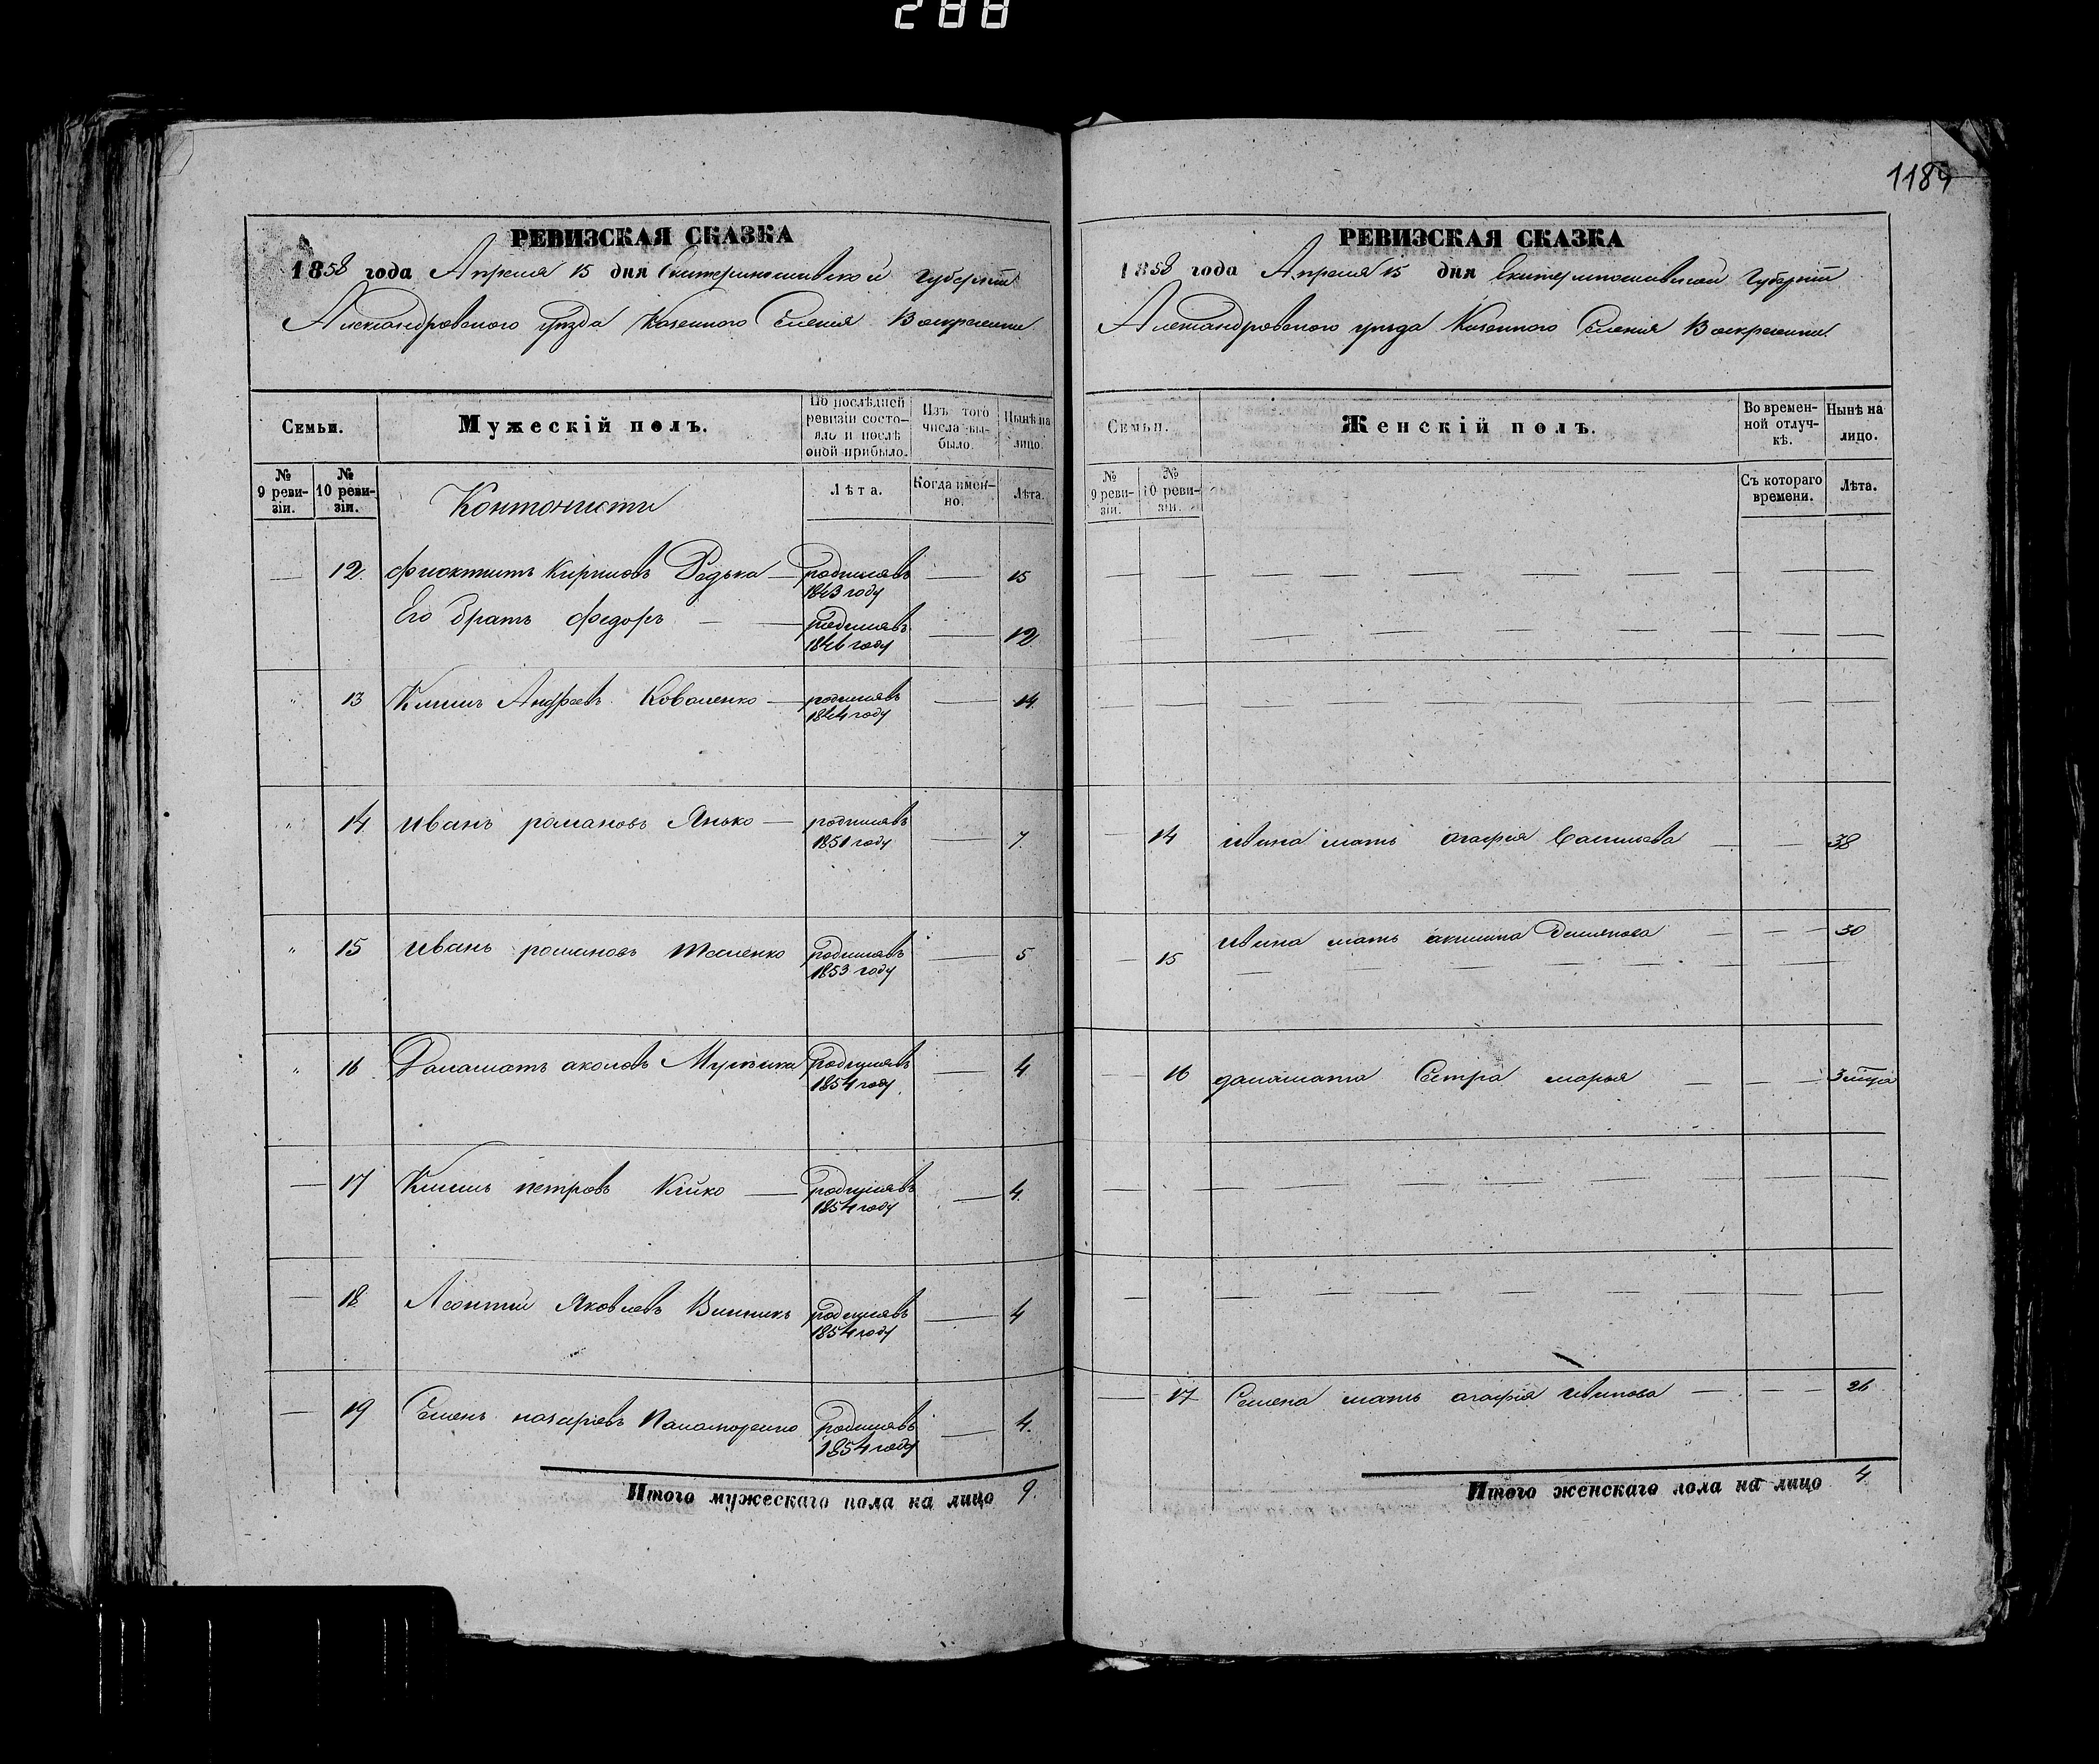 288
1184
РЕВИЗСКАЯ СКАЗКА
1858 года Апреля 15 дня Екатеринославской губерніи
Александровского уезда Казенного Селения Воскресенки
Семьи.
Мужескій полъ.
По послѣдней ревизіи состояло и послѣ оной прибыло.
Изъ того числа выбыло.
Нынѣ на лицо.
№ 9 ревизіи.
№ 10 ревизіи.
Контонисти
Лѣта.
Когда именно.
Лѣта.
12. Кирилов Редька родился в 15
1843 году
Его брат федоръ родился в 12
1846 году
13 Климъ Андреевъ Коваленко родился в 14.
1844 году
14. иванъ романовъ Янько родился в 7.
1851 году
15 иванъ романовъ родился в 5
1853 году
16 родился в 4
1854 году
17 Климъ петровъ родился в 4.
1854 году
18 Леонтий Яковлевъ Винникъ родился в 4
1854 году
19 Семенъ назаровъ Паламаренко родился в 4.
1854 году
Итого мужескаго пола на лицо 9.
РЕВИЗСКАЯ СКАЗКА
1858 года Апреля 15 дня Екатеринославской Губерніи
Александровского уезда Казенного Селения Воскресенки
Семьи.
Женскій полъ.
Во временной отлучкѣ.
Нынѣ на лицо.
№ 9 ревизіи.
№ 10 ревизіи.
Съ котораго времени.
Лѣта.
14 ивана мать агафия 38
15 ивана мать акилина Демянова 30
16 Сестра марья
17 Семена мать агафия иванова 26
Итого женскаго пола на лицо 4